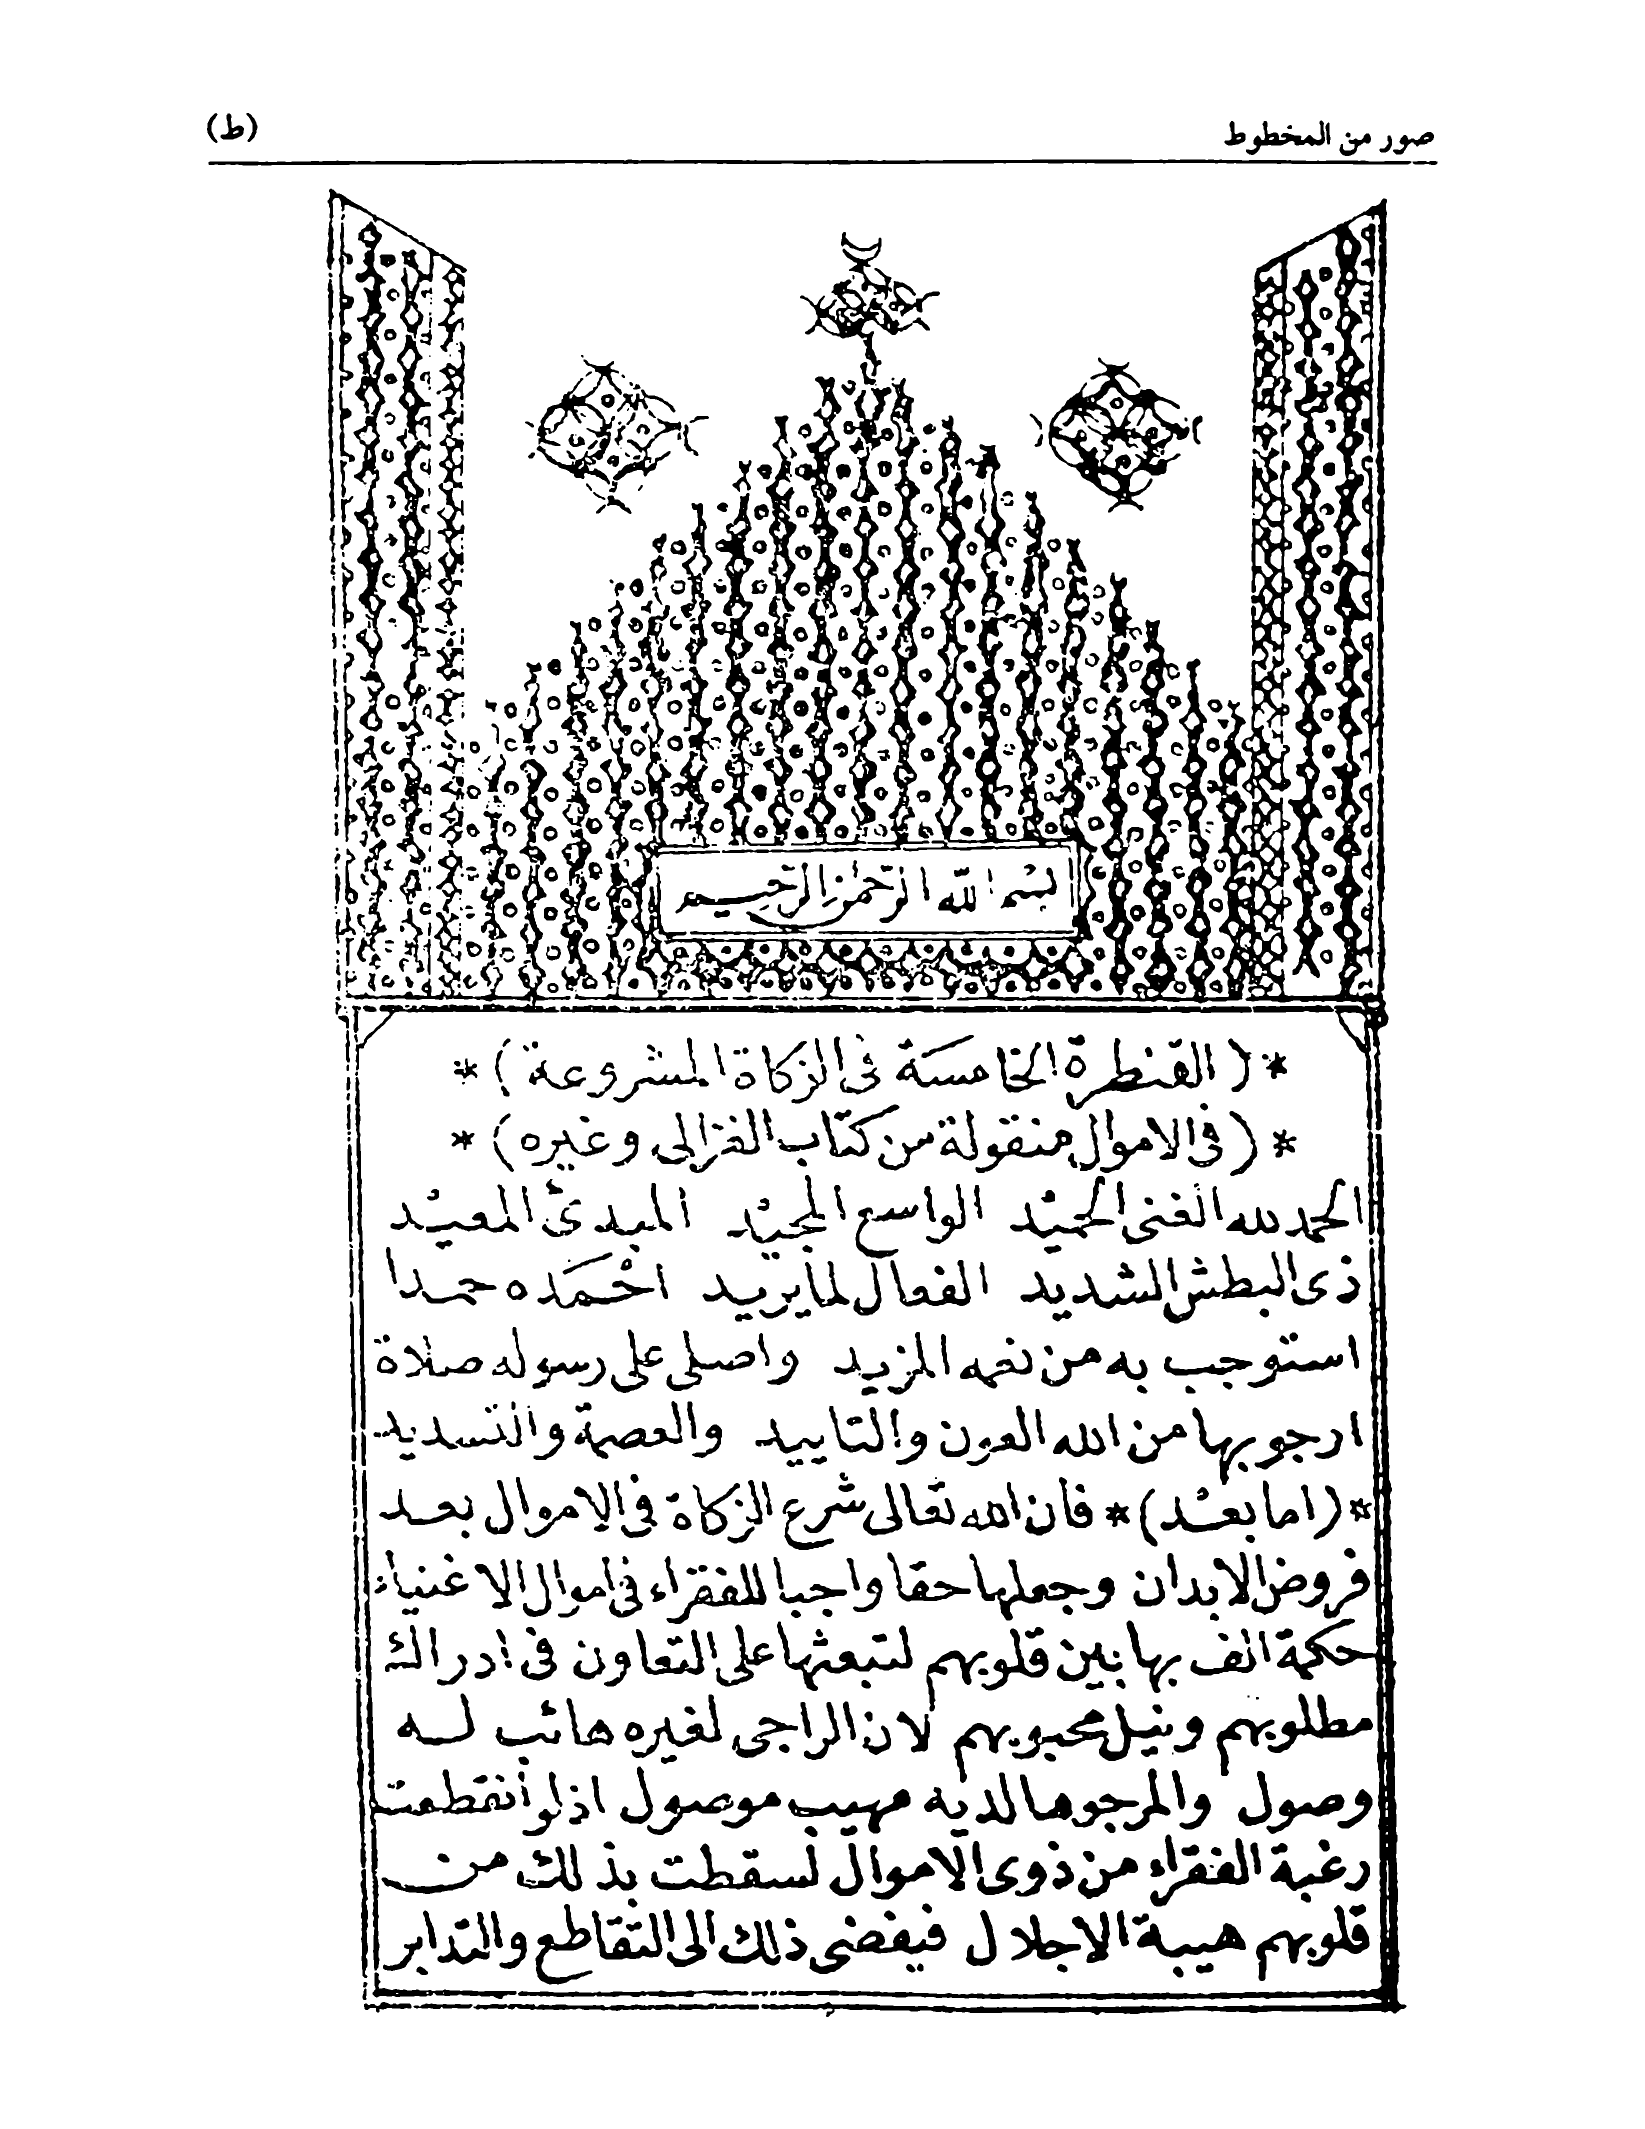 صور من المخطوط (ط)
بسم الله الرحمن الرحيم
*( القنطرة الخامسة فى الزكاة المشروعة )*
*( فى الاموال منقولة من كتاب الغزالى وغيره )*
الحمد لله الغنى الحميد الواسع المجيد المبدئ المعيد
ذى البطش الشديد الفعال لما يريد احمده حمدا
استوجب به من نعمه المزيد واصلى على رسوله صلاة
ارجو بها من الله العون والتاييد والعصمة والتسديد
*( اما بعد )* فان الله تعالى شرع الزكاة فى الاموال بعد
فروض الابدان وجعلها حقا واجبا للفقراء فى اموال الاغنياء
حكمة الف بها بين قلوبهم لتبعثها على التعاون فى ادراك
مطلوبهم ونيل محبوبهم لان الراجى لغيره هائب له
وصول والمرجو هالديه مهيب موصول اذ لو أنقطعت
رغبة الفقراء من ذوى الاموال لسقطت بذلك من
قلوبهم هيبة الاجلال فيفضى ذلك الى التقاطع والتدابر